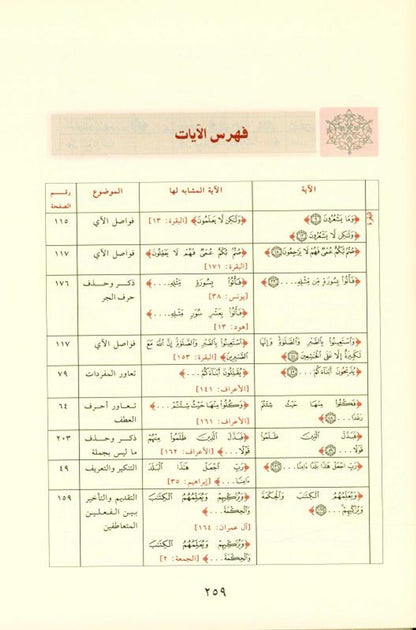 فهرس الآيات
الآية
الآية المشابه لها
الموضوع
رقم
الصفحة
البقرة
﴿وَمَا يَشْعُرُونَ ۝﴾
﴿وَلَٰكِن لَّا يَعْلَمُونَ﴾ [البقرة: ١٣]
فواصل الآي
١١٥
﴿وَلَٰكِن لَّا يَشْعُرُونَ ۝﴾
﴿صُمٌّ بُكْمٌ عُمْيٌ فَهُمْ لَا يَرْجِعُونَ ۝﴾
﴿صُمٌّ بُكْمٌ عُمْيٌ فَهُمْ لَا يَعْقِلُونَ﴾
[البقرة: ١٧١]
فواصل الآي
١١٧
﴿فَأْتُوا بِسُورَةٍ مِّن مِّثْلِهِ.... ۝﴾
﴿فَأْتُوا بِسُورَةٍ مِّثْلِهِ....﴾
[يونس: ٣٨]
﴿فَأْتُوا بِعَشْرِ سُوَرٍ مِّثْلِهِ....﴾
[هود: ١٣]
ذكر وحذف
حرف الجر
١٧٦
﴿وَاسْتَعِينُوا بِالصَّبْرِ وَالصَّلَوٰةِ وَإِنَّهَا
لَكَبِيرَةٌ إِلَّا عَلَى الْخَاشِعِينَ ۝﴾
﴿اسْتَعِينُوا بِالصَّبْرِ وَالصَّلَوٰةِ إِنَّ اللَّهَ مَعَ
الصَّابِرِينَ﴾ [البقرة: ١٥٣]
فواصل الآي
١١٧
﴿يُذَبِّحُونَ أَبْنَاءَكُمْ... ۝﴾
﴿يُقَتِّلُونَ أَبْنَاءَكُمْ...﴾
[الأعراف: ١٤١]
تعاور المفردات
٧٩
﴿فَكُلُوا مِنْهَا حَيْثُ شِئْتُمْ
رَغَدًا... ۝﴾
﴿وَكُلُوا مِنْهَا حَيْثُ شِئْتُمْ...﴾
[الأعراف: ١٦١]
تعاور أحرف
العطف
٦٤
﴿فَبَدَّلَ الَّذِينَ ظَلَمُوا
قَوْلًا... ۝﴾
﴿فَبَدَّلَ الَّذِينَ ظَلَمُوا مِنْهُمْ
قَوْلًا...﴾ [الأعراف: ١٦٢]
ذكر وحذف
ما ليس بجملة
٢٠٣
﴿رَبِّ اجْعَلْ هَٰذَا بَلَدًا ءَامِنًا... ۝﴾
﴿رَبِّ اجْعَلْ هَٰذَا الْبَلَدَ
ءَامِنًا...﴾ [إبراهيم: ٣٥]
التنكير والتعريف
٤٩
﴿وَيُعَلِّمُهُمُ الْكِتَابَ وَالْحِكْمَةَ
وَيُزَكِّيهِمْ... ۝﴾
﴿وَيُزَكِّيهِمْ وَيُعَلِّمُهُمُ الْكِتَابَ
وَالْحِكْمَةَ...﴾
[آل عمران: ١٦٤]
﴿وَيُزَكِّيهِمْ وَيُعَلِّمُهُمُ الْكِتَابَ
وَالْحِكْمَةَ...﴾ [الجمعة: ٢]
التقديم والتأخير
بين الفعلين
المتعاطفين
١٥٩
٢٥٩